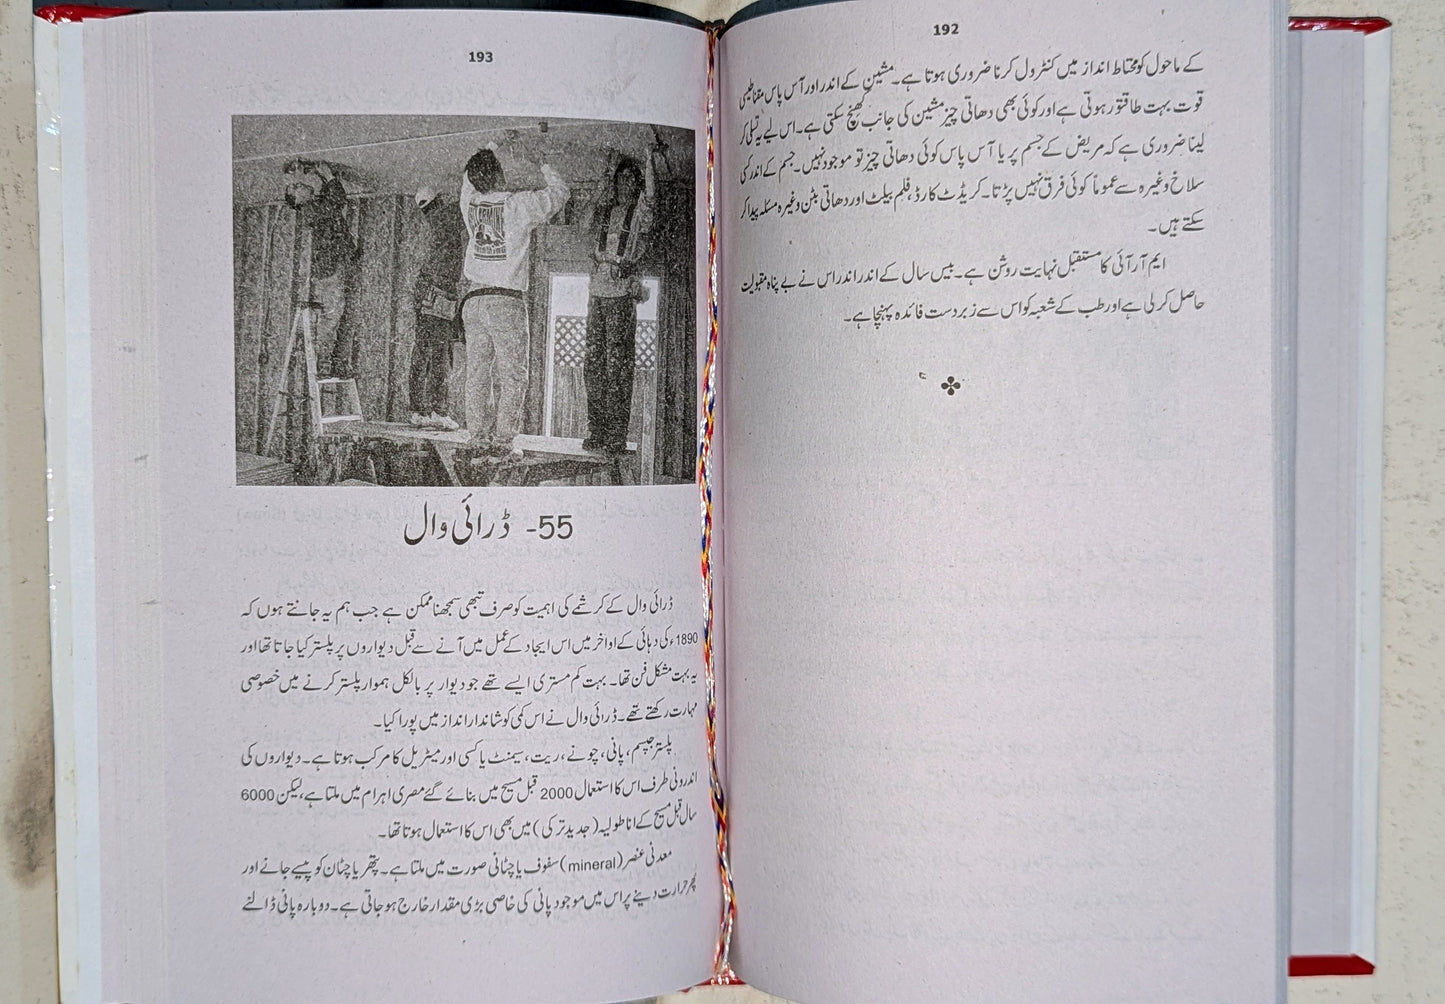 192
کے ماحول کو محتاط انداز میں کنٹرول کرنا ضروری ہوتا ہے۔ مشین کے اندر اور آس پاس مقناطیسی
قوت بہت طاقتور ہوتی ہے اور کوئی بھی دھاتی چیز مشین کی جانب کھنچ سکتی ہے۔ اس لیے یہ تسلی کر
لینا ضروری ہے کہ مریض کے جسم پر یا آس پاس کوئی دھاتی چیز تو موجود نہیں۔ جسم کے اندر کی
سلاخ وغیرہ سے عموماً کوئی فرق نہیں پڑتا۔ کریڈٹ کارڈ، فلم بیلٹ اور دھاتی بٹن وغیرہ مسئلہ پیدا کر
سکتے ہیں۔
ایم آر آئی کا مستقبل نہایت روشن ہے۔ بیس سال کے اندر اندر اس نے بے پناہ مقبولیت
حاصل کر لی ہے اور طب کے شعبہ کو اس سے زبردست فائدہ پہنچا ہے۔
193
55- ڈرائی وال
ڈرائی وال کے کرشمے کی اہمیت کو صرف تبھی سمجھنا ممکن ہے جب ہم یہ جانتے ہوں کہ
1890ء کی دہائی کے اواخر میں اس ایجاد کے عمل میں آنے سے قبل دیواروں پر پلستر کیا جاتا تھا اور
یہ بہت مشکل فن تھا۔ بہت کم مستری ایسے تھے جو دیوار پر بالکل ہموار پلستر کرنے میں خصوصی
مہارت رکھتے تھے۔ ڈرائی وال نے اس کمی کو شاندار انداز میں پورا کیا۔
پلستر جپسم، پانی، چونے، ریت، سیمنٹ یا کسی اور میٹریل کا مرکب ہوتا ہے۔ دیواروں کی
اندرونی طرف اس کا استعمال 2000 قبل مسیح میں بنائے گئے مصری اہرام میں ملتا ہے، لیکن 6000
سال قبل مسیح کے اناطولیہ (جدید ترکی) میں بھی اس کا استعمال ہوتا تھا۔
معدنی عنصر (mineral) سفوف یا چٹانی صورت میں ملتا ہے۔ پتھر یا چٹان کو پیسے جانے اور
پھر حرارت دینے پر اس میں موجود پانی کی خاصی بڑی مقدار خارج ہو جاتی ہے۔ دوبارہ پانی ڈالنے